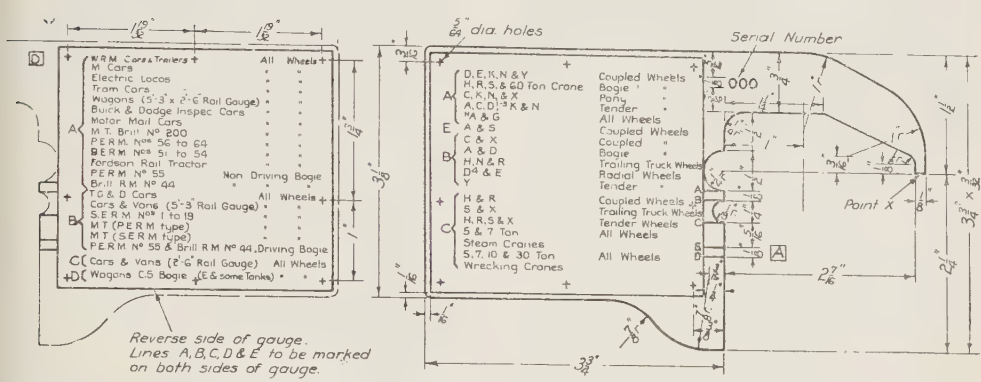 1 19/32" 1 19/32"
D
WRM Cars & Trailers All Wheels
M Cars " "
Electric Locos " "
Tram Cars " "
Wagons (5'-3" x 2'-6" Rail Gauge) " "
Buick & Dodge Inspec Cars " "
Motor Mail Cars " "
A M.T. Brill Nº 200 " "
PERM. Nos 56 to 64 " "
BERM Nos 51 to 54 " "
Fordson Rail Tractor " "
PERM Nº 55 Non Driving Bogie
Brill RM Nº 44 " " "
TC & D Cars All Wheels
Cars & Vans (5'-3" Rail Gauge) " "
B S.E.R.M Nos 1 to 19 " "
MT (PERM type) " "
MT (SERM type) " "
PERM Nº 55 & Brill RM Nº 44, Driving Bogie
C Cars & Vans (2'-6" Rail Gauge) All Wheels
D Wagons C.S Bogie (E & some Tanks) " "
1 3/4"
1"
Reverse side of gauge.
Lines A, B, C, D & E to be marked
on both sides of gauge.
5/64" dia. holes
3 1/8"
1/16"
1/16"
D, E, K, N & Y Coupled Wheels
H, R, S, & 60 Ton Crane Bogie "
A C, K, N, & X Pony "
Tender "
"A & G All Wheels
E A & S Coupled Wheels
C & X Coupled "
A & D Bogie "
B H, N & R Trailing Truck Wheels
D4 & E Radial Wheels
Y Tender "
H & R Coupled Wheels
S & X Trailing Truck Wheels
H, R, S, & X Tender Wheels
C 5 & 7 Ton All Wheels
Steam Cranes
5, 7, 10 & 30 Ton All Wheels
Wrecking Cranes
Serial Number
000
3/4"
1"r
1 1/2"
Point X
1/8"
3 3/4" x 3/32"
A
B
C
E
D
A
2 7/16"
2 1/4"
7/8"r
3 3/4"